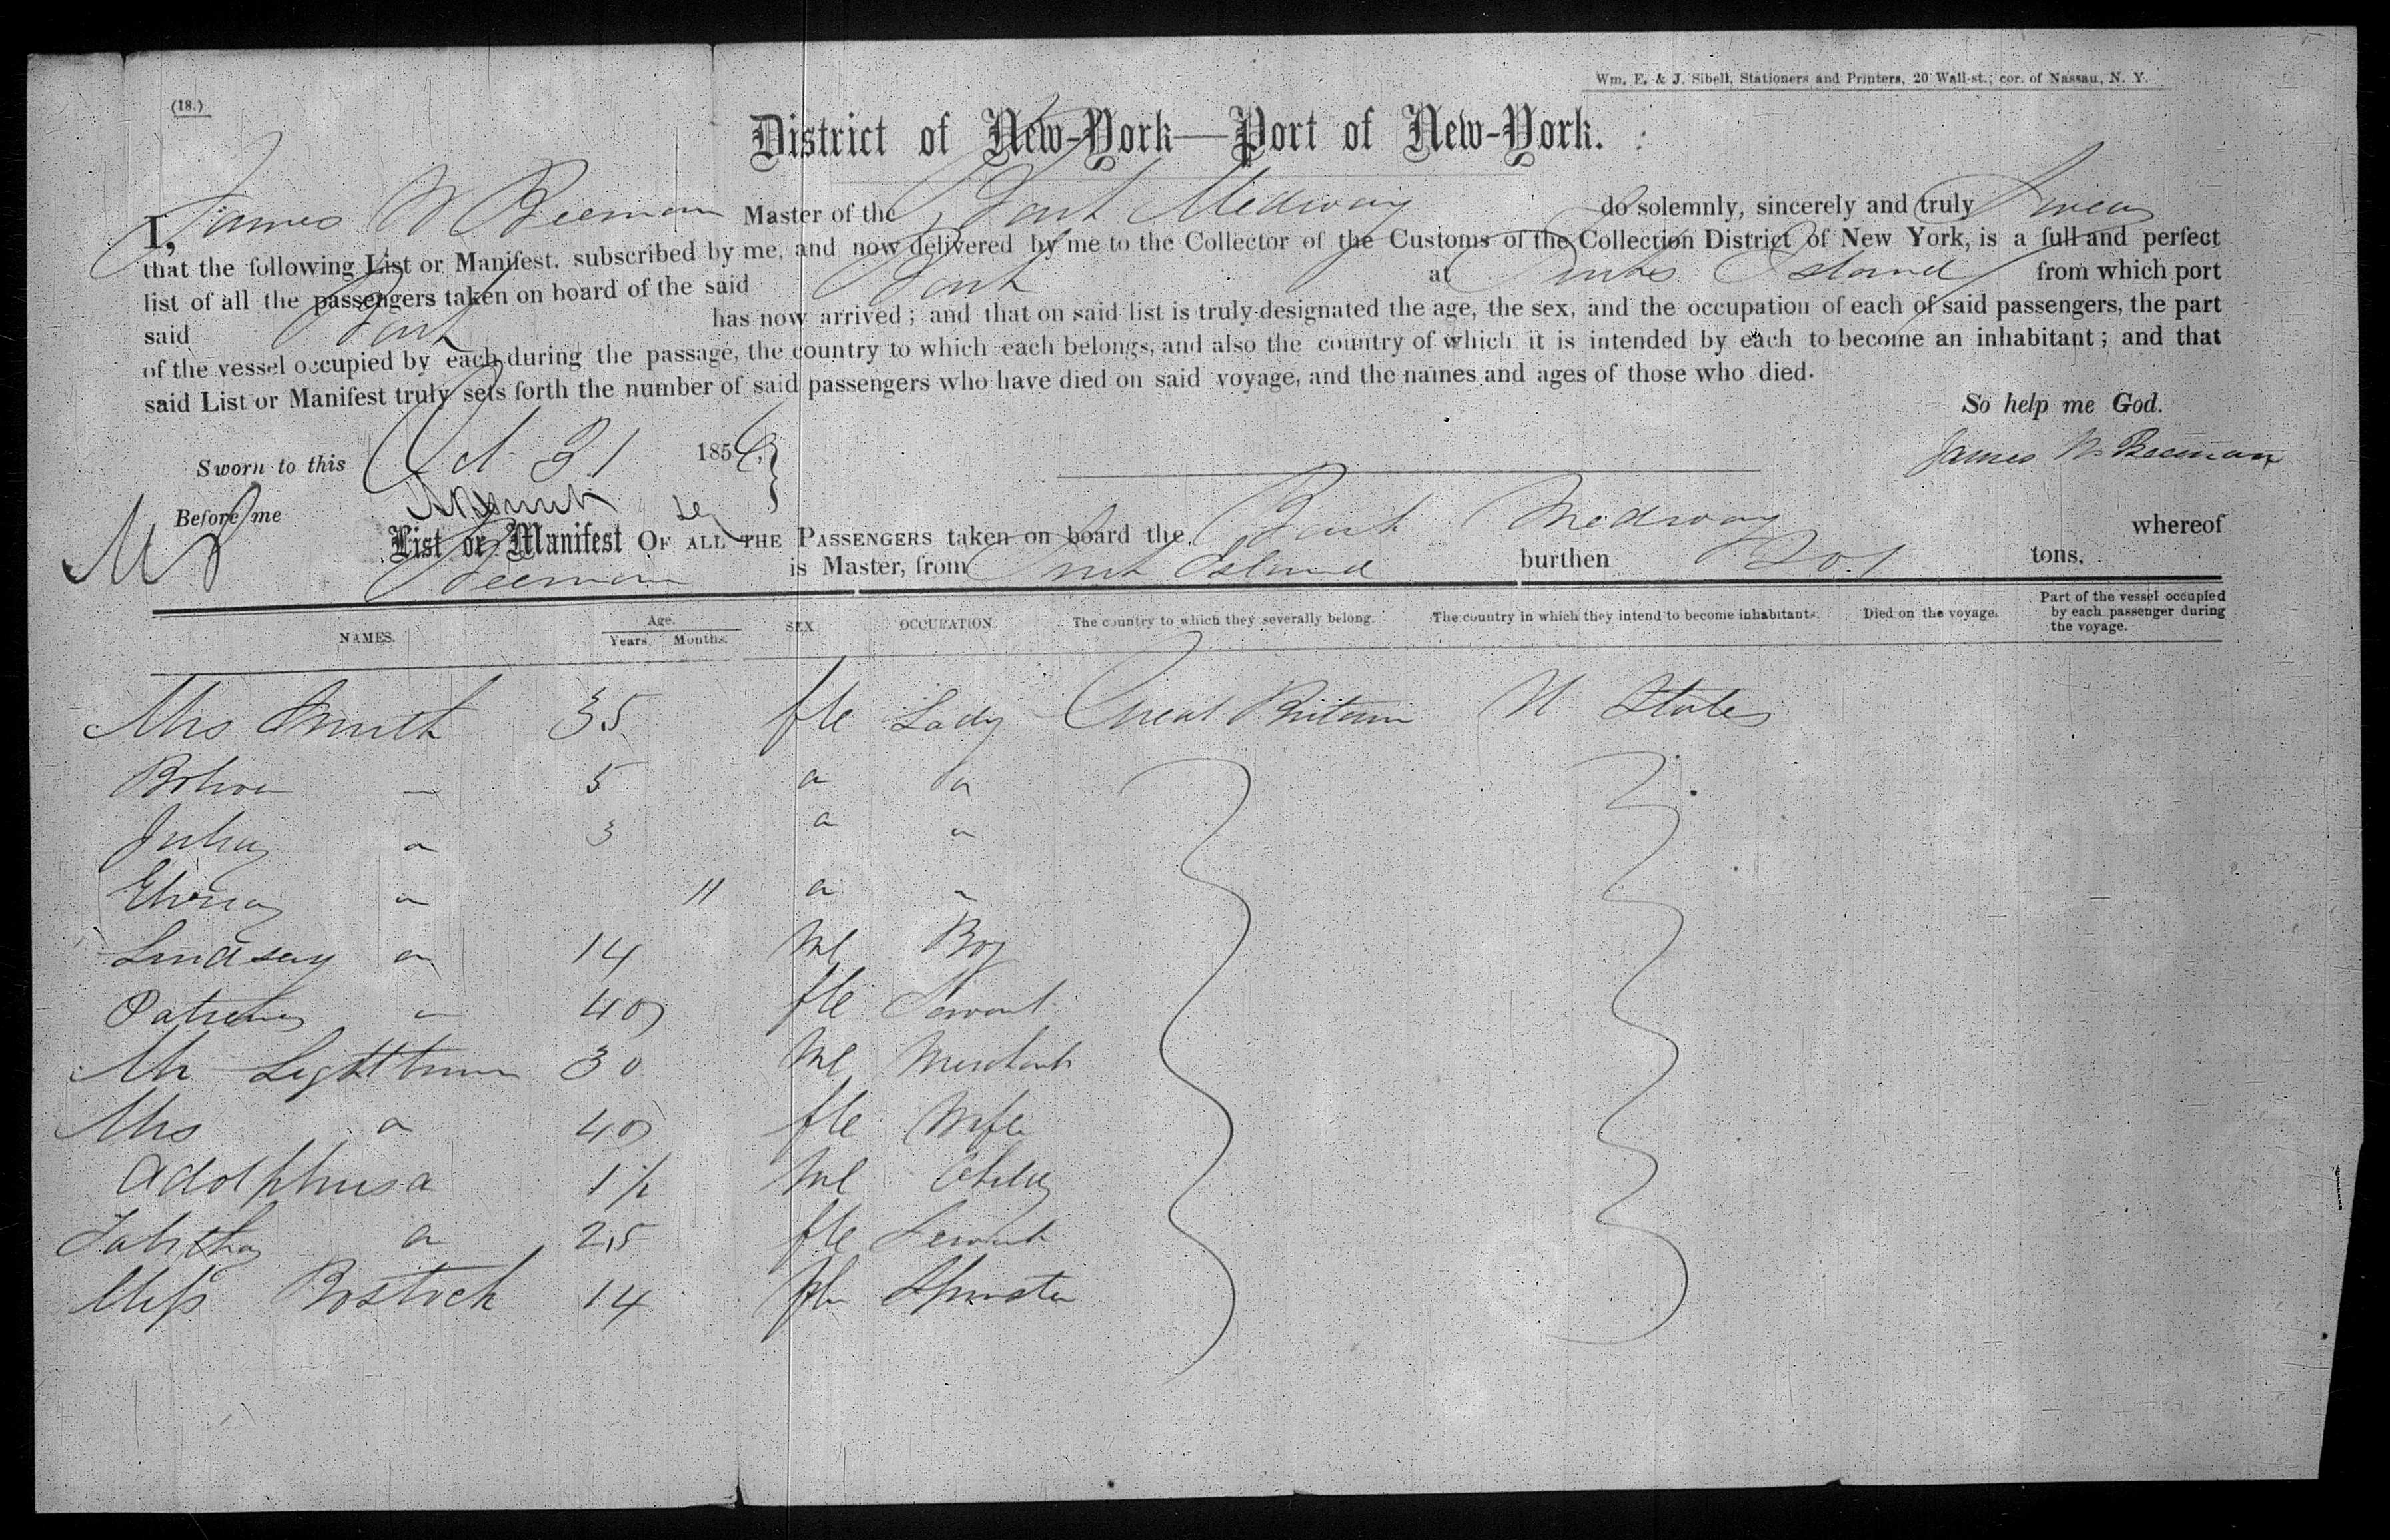 Wm. E. & J. Sibell, Stationers and Printers, 20 Wall-st., cor. of Nassau, N. Y.
(18.)
District of New-York—Port of New-York.
I, James W Beeman Master of the Bark Medway do solemnly, sincerely and truly Swear
that the following List or Manifest, subscribed by me, and now delivered by me to the Collector of the Customs of the Collection District of New York, is a full and perfect
list of all the passengers taken on board of the said Bark at Turks Island from which port
said Bark has now arrived; and that on said list is truly designated the age, the sex, and the occupation of each of said passengers, the part
of the vessel occupied by each during the passage, the country to which each belongs, and also the country of which it is intended by each to become an inhabitant; and that
said List or Manifest truly sets forth the number of said passengers who have died on said voyage, and the names and ages of those who died.
So help me God.
Sworn to this Oct 31 1856 James W. Beeman
Before me
List or Manifest OF ALL THE PASSENGERS taken on board the Bark Medway whereof
Beeman is Master, from Turk Island burthen 201 tons.
NAMES. Age. Years. Months. SEX OCCUPATION. The country to which they severally belong. The country in which they intend to become inhabitants. Died on the voyage. Part of the vessel occupied by each passenger during the voyage.
Mrs Smith 35 fle Lady Great Britain U States
5 " "
Julia " 3 " "
" 11 " "
Lindsay " 14 Ml Boy
" 40 fle Servant
Mr Lightburn 30 Ml Merchant
Mrs " 40 fle Wife
Adolphus " 1½ Ml Child
Tabitha " 25 fle Servant
Miss Bostock 14 fle Spinster